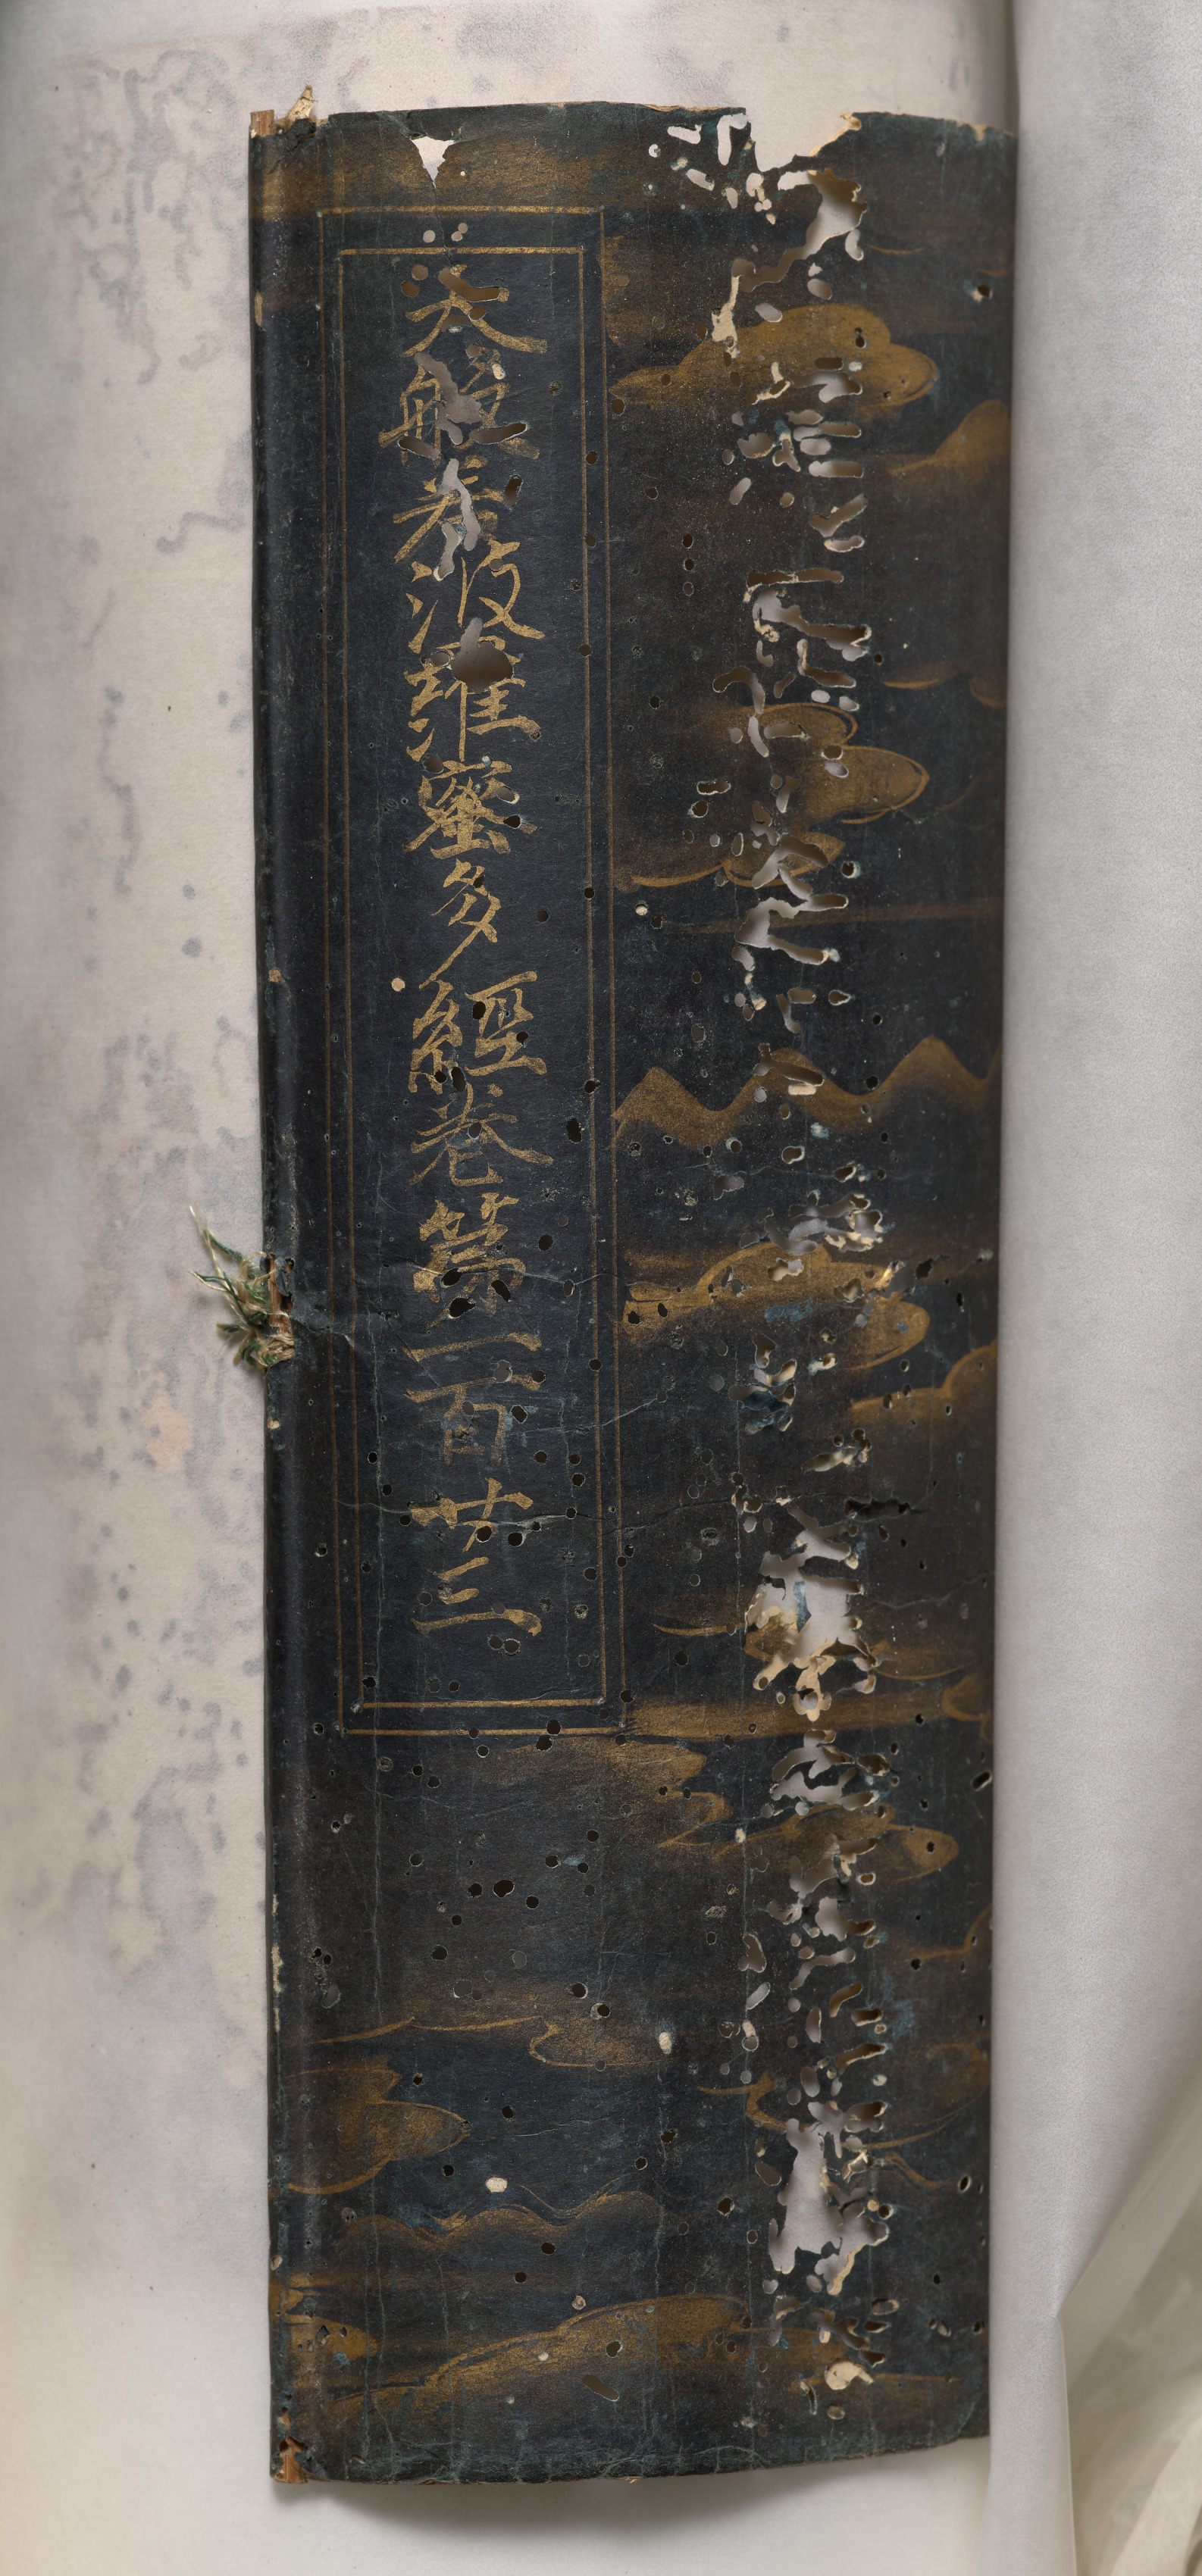 大般若波羅蜜多經卷第一百廿三